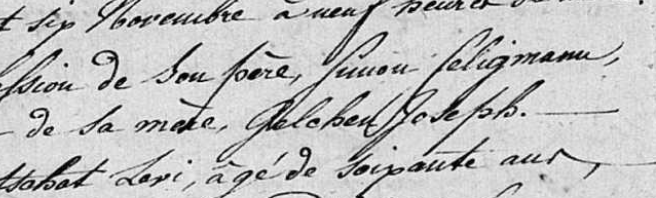 six Novembre à neuf heures
ssion de son père, Simon Seligmann,
de sa mère, Gelchen Joseph.
tschat Levi, âgé de soixante ans,